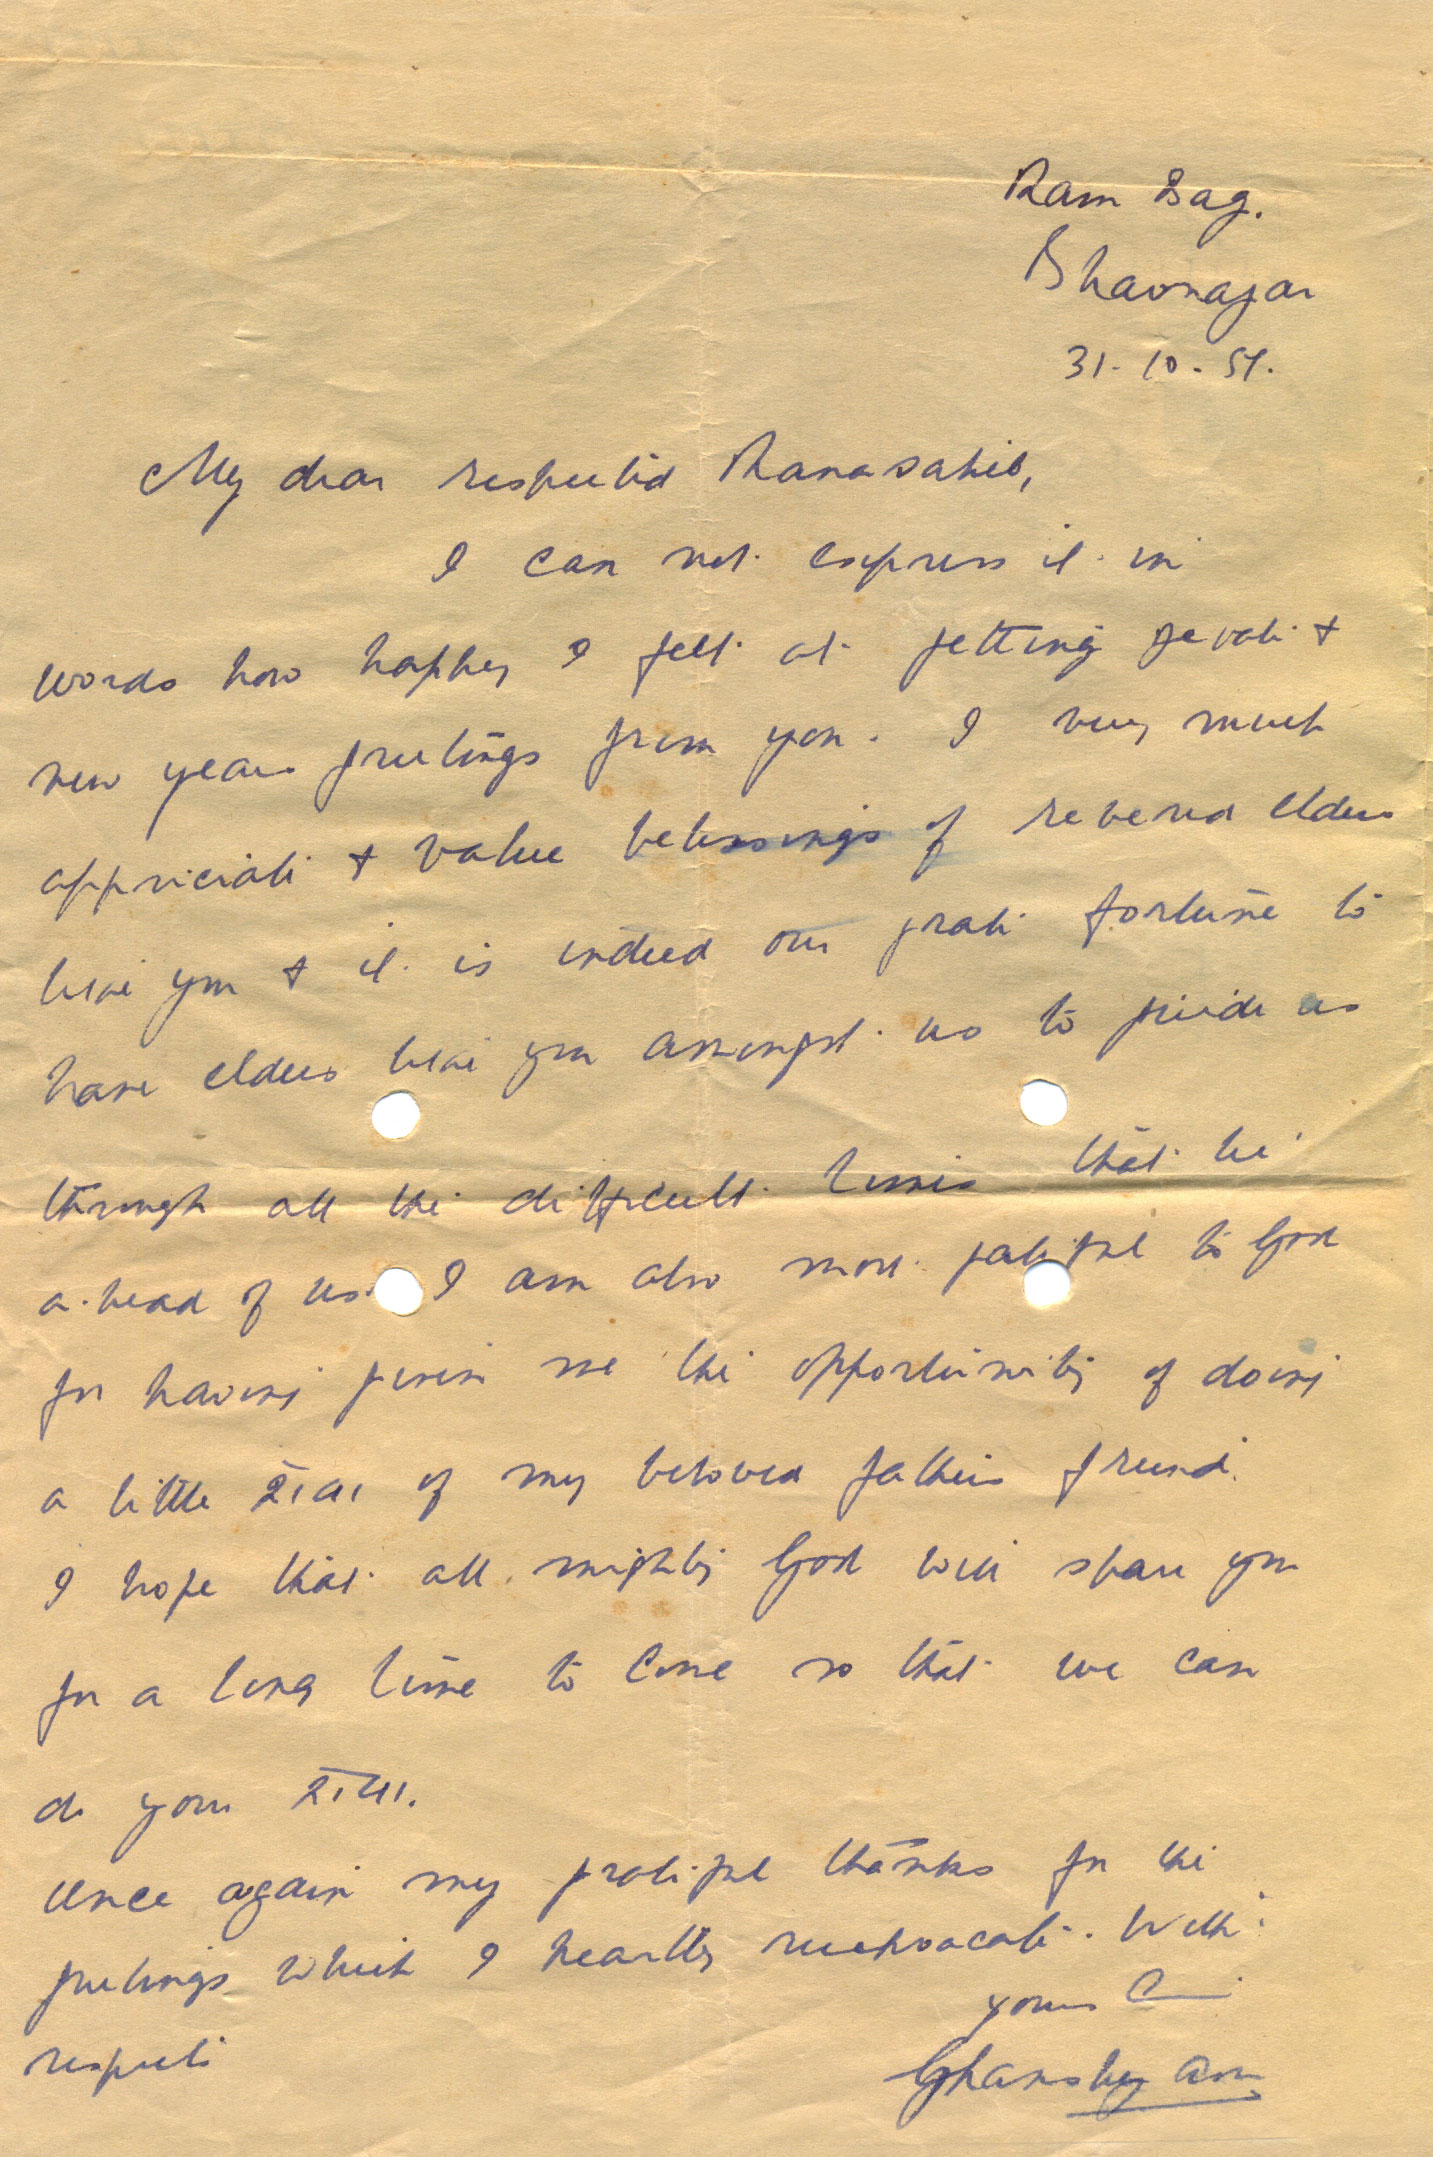 Ram Bag.
Bhavnagar
31-10-51.
My dear respected Ranasahib,
I can not express it in
words how happy I felt at getting Devali &
new years greetings from you. I very much
appriciate & value belessings of revered elders
like you & it is indeed our great fortune to
have elders like you amongst us to guide us
through all the difficult times that lie
a-head of us. I am also most gateful to God
for having given me the opportunity of doing
a little સેવા of my beloved fathers friend.
I hope that all mighty God will spare you
for a long time to come so that we can
do your સેવા.
Once again my grateful thanks for the
greetings which I heartly reciprocate. With
respects
yours
Ghanshyam